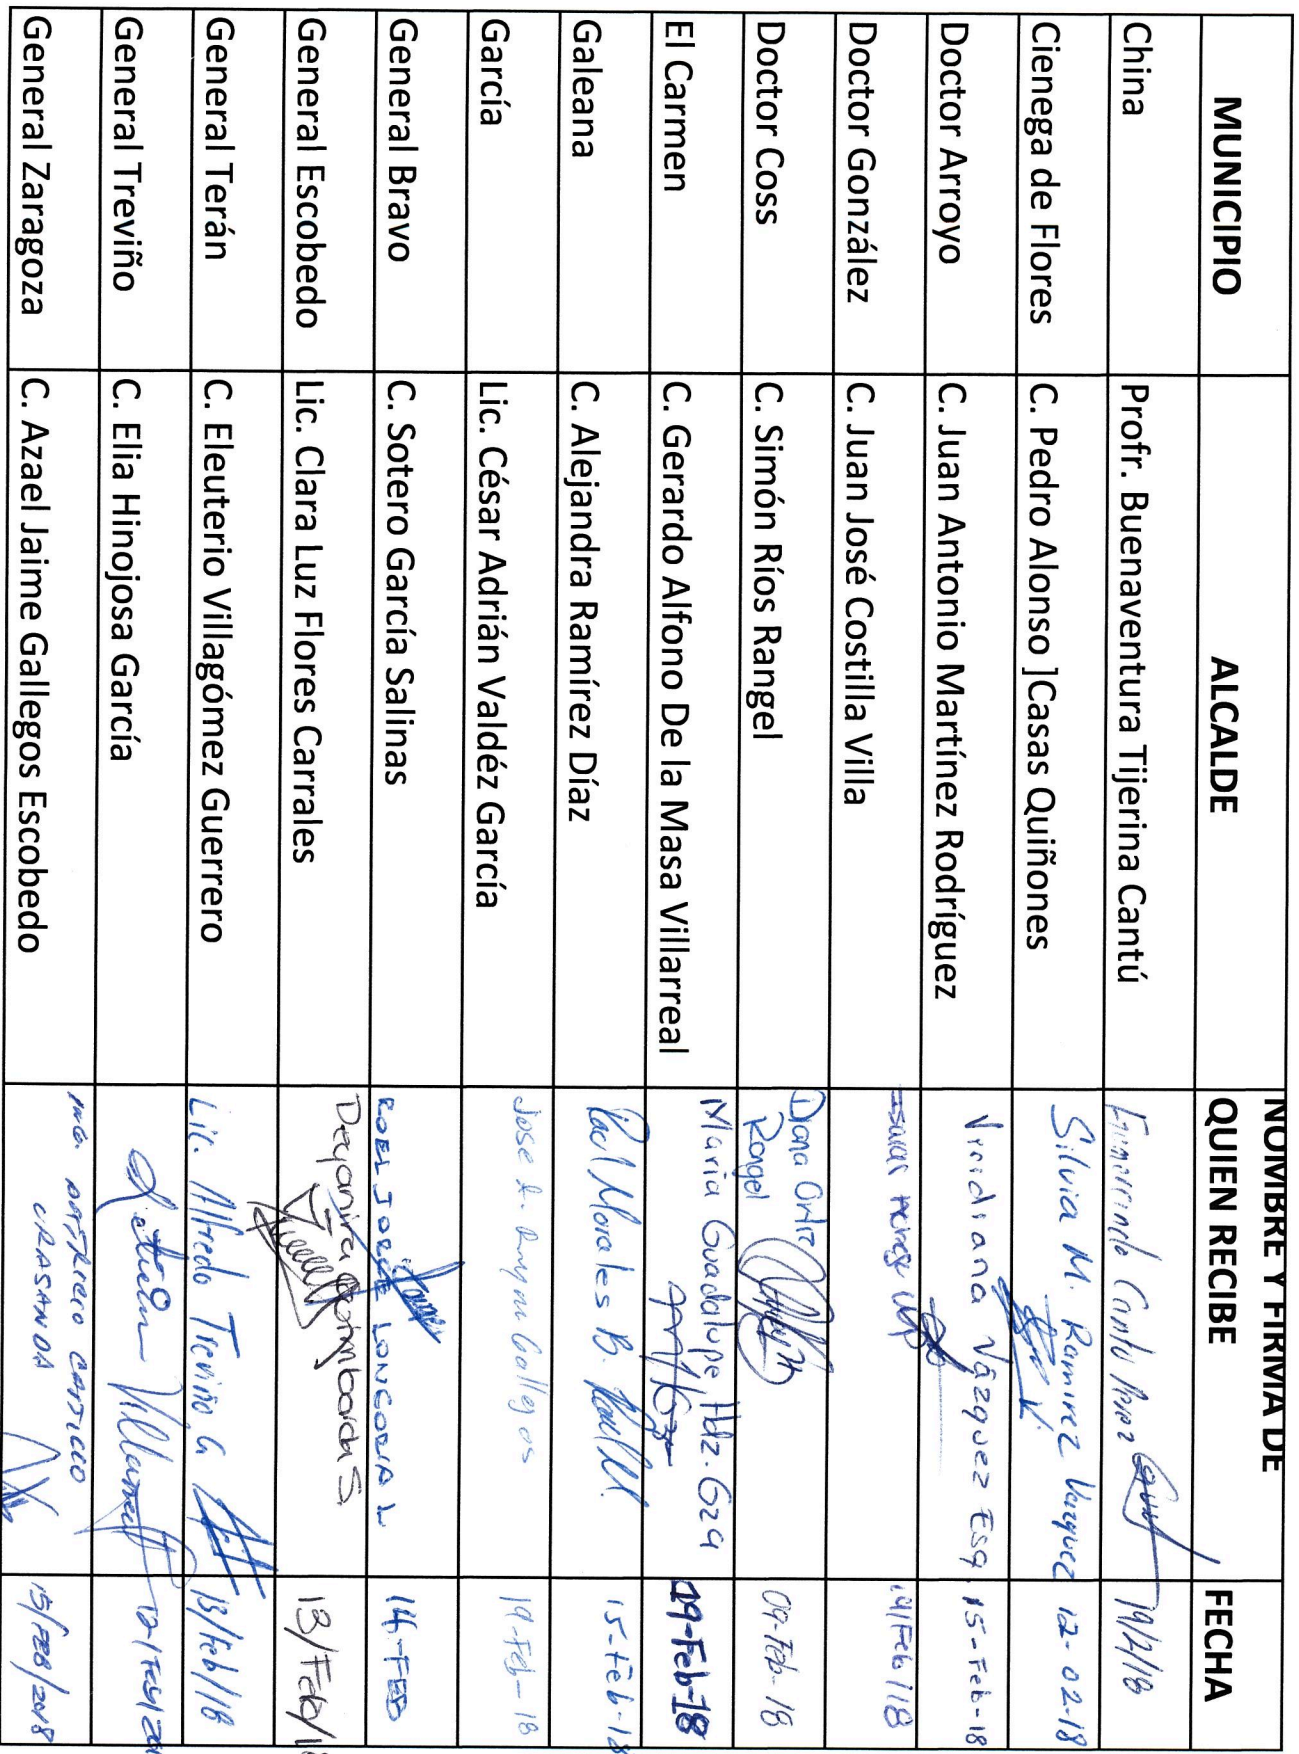 MUNICIPIO ALCALDE NOMBRE Y FIRMA DE QUIEN RECIBE FECHA
China Profr. Buenaventura Tijerina Cantú Cantú 19/2/18
Cienega de Flores C. Pedro Alonso ]Casas Quiñones Silvia M. Ramirez Vazquez 12-02-18
Doctor Arroyo C. Juan Antonio Martínez Rodríguez Viridiana Vázquez Esq. 15-Feb-18
Doctor González C. Juan José Costilla Villa /Feb/18
Doctor Coss C. Simón Ríos Rangel Diana Ortiz Rangel 09-Feb-18
El Carmen C. Gerardo Alfono De la Masa Villarreal Maria Guadalupe Hdz. Gza 09-Feb-18
Galeana C. Alejandra Ramírez Díaz Raul Morales B. 15-Feb-18
García Lic. César Adrián Valdéz García Jose Gallegos 19-Feb-18
General Bravo C. Sotero García Salinas ROEL JORGE LONGORIA L 14-FEB
General Escobedo Lic. Clara Luz Flores Carrales Deyanira S. 13/Feb/18
General Terán C. Eleuterio Villagómez Guerrero Lic. Alfredo Treviño G 13/Feb/18
General Treviño C. Elia Hinojosa García
General Zaragoza C. Azael Jaime Gallegos Escobedo 15/FEB/2018